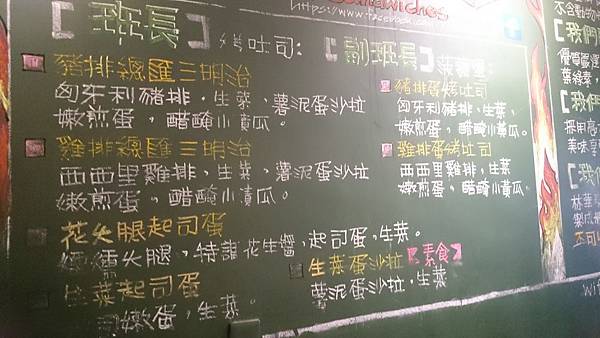 https://www.facebook.com
【班長】烤吐司:
豬排總匯三明治
匈牙利豬排、生菜、薯泥蛋沙拉
嫩煎蛋，醋醃小黃瓜。
雞排總匯三明治
西西里雞排，生菜，薯泥蛋沙拉
嫩煎蛋，醋醃小黃瓜。
花火腿起司蛋
火腿，特調花生醬，起司蛋，生菜。
生菜起司蛋
嫩蛋，生菜。
【副班長】
豬排蛋烤吐司
匈牙利豬排，生菜，
嫩煎蛋，醋醃小黃瓜。
雞排蛋烤吐司
西西里雞排，生菜
嫩煎蛋，醋醃小黃瓜。
生菜蛋沙拉【素食】
薯泥蛋沙拉，生菜
【我們
優質嚴選
葉綠素，
【我們
採用高
美味享
【我們
林華
製成
不可
wif